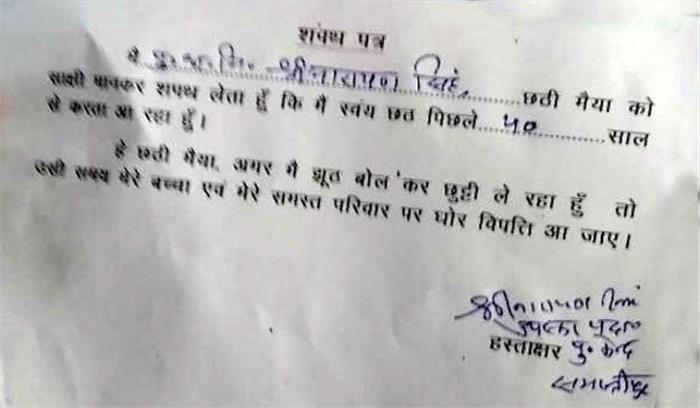 शपथ पत्र
मै पु.अ.नि. श्रीनारायण सिंह, छठी मैया को
साक्षी मानकर शपथ लेता हूँ कि मै स्वंय छठ पिछले 50 साल
से करता आ रहा हूँ।
हे छठी मैया, अगर मै झूठ बोल कर छुट्टी ले रहा हूँ तो
उसी समय मेरे बच्चा एवं मेरे समस्त परिवार पर घोर विपत्ति आ जाए।
श्रीनारायण सिंह
हस्ताक्षर पु. केन्द्र